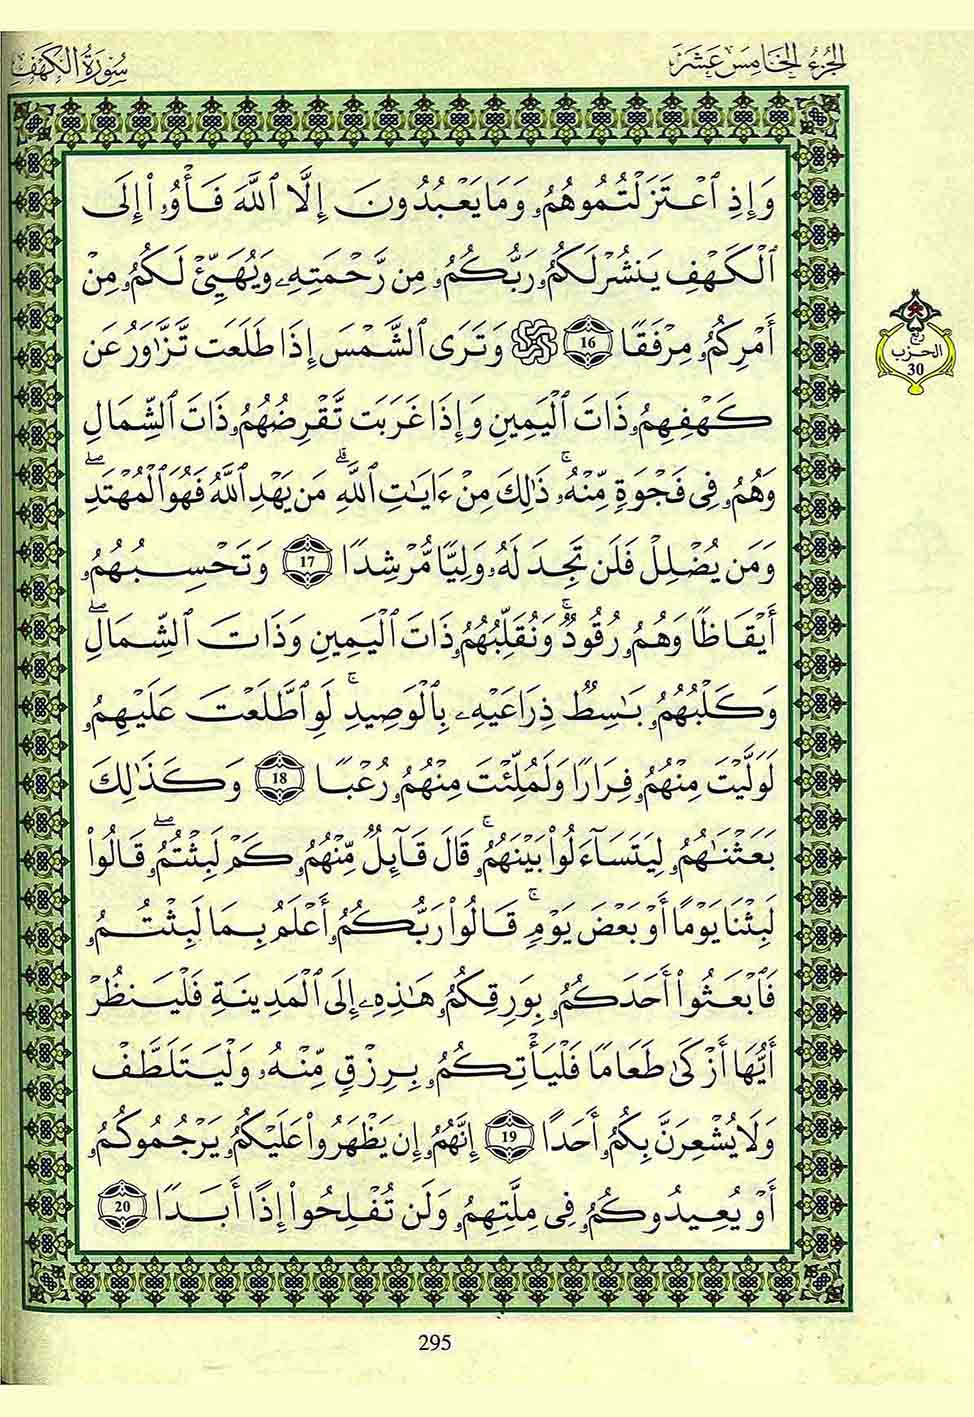 الجزء الخامس عشر
سورة الكهف
وَإِذِ اِ۪عْتَزَلْتُمُوهُمُۥ وَمَا يَعْبُدُونَ إِلَّا اَ۬للَّهَ فَأْوُۥٓاْ إِلَى
اَ۬لْكَهْفِ يَنشُرْ لَكُمُۥ رَبُّكُمُۥ مِن رَّحْمَتِهِۦ وَيُهَيِّئْ لَكُمُۥ مِنْ
أَمْرِكُمُۥ مِرْفَقًا 16 وَتَرَى اَ۬لشَّمْسَ إِذَا طَلَعَت تَّزَّٰوَرُ عَن
كَهْفِهِمُۥ ذَاتَ اَ۬لْيَمِينِ وَإِذَا غَرَبَت تَّقْرِضُهُمُۥ ذَاتَ اَ۬لشِّمَالِ
وَهُمُۥ فِى فَجْوَةٍ مِّنْهُۥۚ ذَٰلِكَ مِنْ ءَايَٰتِ اِ۬للَّهِۗ مَن يَهْدِ اِ۬للَّهُ فَهُوَ اَ۬لْمُهْتَدِۖ
وَمَن يُضْلِلْ فَلَن تَجِدَ لَهُۥ وَلِيًّا مُّرْشِدًا 17 وَتَحْسِبُهُمُۥ
أَيْقَاظًا وَهُمُۥ رُقُودٌۚ وَنُقَلِّبُهُمُۥ ذَاتَ اَ۬لْيَمِينِ وَذَاتَ اَ۬لشِّمَالِۖ
وَكَلْبُهُمُۥ بَٰسِطٌ ذِرَاعَيْهِۦ بِالْوَصِيدِۚ لَوِ اِ۪طَّلَعْتَ عَلَيْهِمُۥ
لَوَلَّيْتَ مِنْهُمُۥ فِرَارًا وَلَمُلِّئْتَ مِنْهُمُۥ رُعْبًا 18 وَكَذَٰلِكَ
بَعَثْنَٰهُمُۥ لِيَتَسَآءَلُواْ بَيْنَهُمُۥۚ قَالَ قَآئِلٌ مِّنْهُمُۥ كَمْ لَبِثْتُمُۥۖ قَالُواْ
لَبِثْنَا يَوْمًا أَوْ بَعْضَ يَوْمٍۚ قَالُواْ رَبُّكُمُۥ أَعْلَمُ بِمَا لَبِثْتُمُۥ
فَابْعَثُواْ أَحَدَكُمُۥ بِوَرِقِكُمُۥ هَٰذِهِۦ إِلَى اَ۬لْمَدِينَةِ فَلْيَنظُرْ
أَيُّهَا أَزْكَىٰ طَعَامًا فَلْيَأْتِكُمُۥ بِرِزْقٍ مِّنْهُۥ وَلْيَتَلَطَّفْ
وَلَا يُشْعِرَنَّ بِكُمُۥ أَحَدًا 19 إِنَّهُمُۥ إِن يَظْهَرُواْ عَلَيْكُمُۥ يَرْجُمُوكُمُۥ
أَوْ يُعِيدُوكُمُۥ فِى مِلَّتِهِمُۥ وَلَن تُفْلِحُواْ إِذًا أَبَدًا 20
ربع
الحزب
30
295